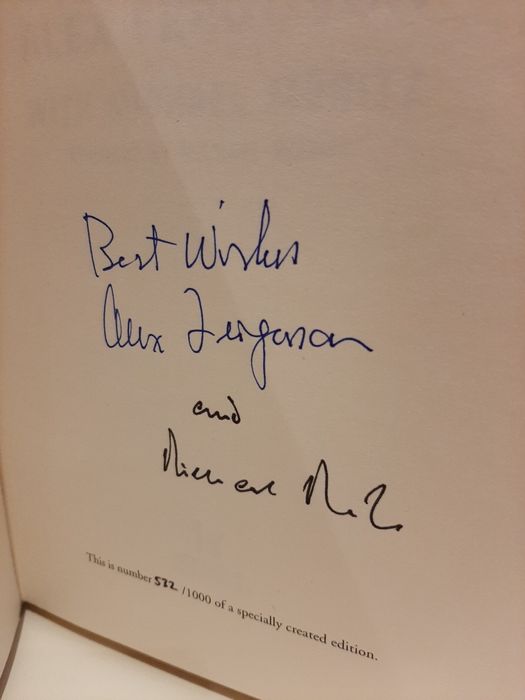 Best Wishes
Alex Ferguson
and
Michael
This is number 522 /1000 of a specially created edition.